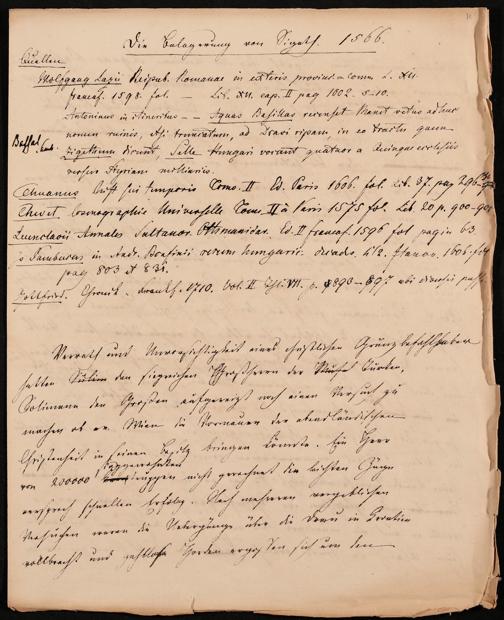 Die Belagerung von Sigeth. 1566.
Quellen
Wolfgang Lazii Reipub. Romanae in exteris provinc. comm. L. XII.
francof. 1598. fol. — Lib. XII. cap. II pag 1002. 5-10.
Antonius in itineritus — Aquas Bassillas recenset Manet vetus adhuc
nomen ruinis, etsi truncatum, ad Dravi ripam, in eo tractu quem
Zigethium dicunt, Hungari vocant quatuor a
versus Styriam milliariis.
Thuanus Hist sui temporis Tomo. II Ed. Paris 1606. fol. Lib. 37. pag 296
Thevet. Cosmographie Universelle Tom. II à Paris 1575 fol. Lib 20 p. 900-90
Leunclavii Annales Sultanor. Othmanidar. Ed. II francof. 1596 fol pagin 63
Sambucus in Bonfinii rerum hungaric. decades. 4½. Hanov. 1606. fol
pag 803 et 834.
Gottfried. Chronik. 1710. Vol. II VII. p. 890-897 ubi
Verrath und Unvorsichtigkeit eines christlichen Gränzbefehlshaber
hatten den siegreichen Großherrn der Türken,
Solimann den Großen aufgereizt noch einen Versuch zu
machen ob er Wien die Vormauer der abendländischen
Christenheit in seinen Besitz bringen könnte. Ein Heer
von 200000 truppen nicht gerechnet die
versprach schnellen Erfolg. Nach mehreren vergeblichen
Versuchen waren die Uebergänge über die Drau in Croatien
vollbracht und zahllose Horden ergossen sich um den